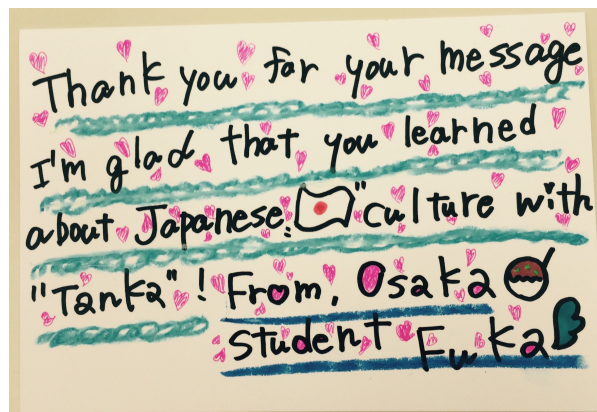 Thank you for your message
I'm glad that you learned
about Japanese. "culture with
"Tanka"! From, Osaka
student Fuka